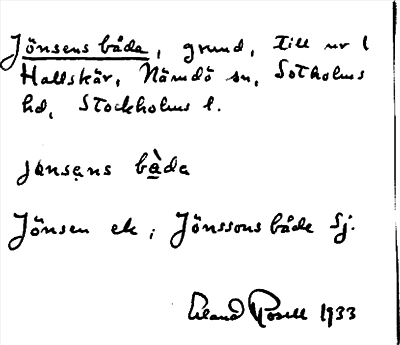 Jönsens båda, grund, till nr 1
Hallskär, Nämdö sn, Sotholms
hd, Stockholms l.
jönsens bàda
Jönsen ek; Jönssons både Sj.
Erland Rosell 1933